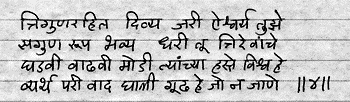 त्रिगुणरहित दिव्य जरी ऐश्वर्य तुझे
सगुण रूप भव्य धरी तू त्रिदेवांचे
घडवी वाढवी मोडी त्यांच्या हस्ते विश्व हे
व्यर्थ परी वाद घाली मूढ हे जो न जाणे ॥४॥